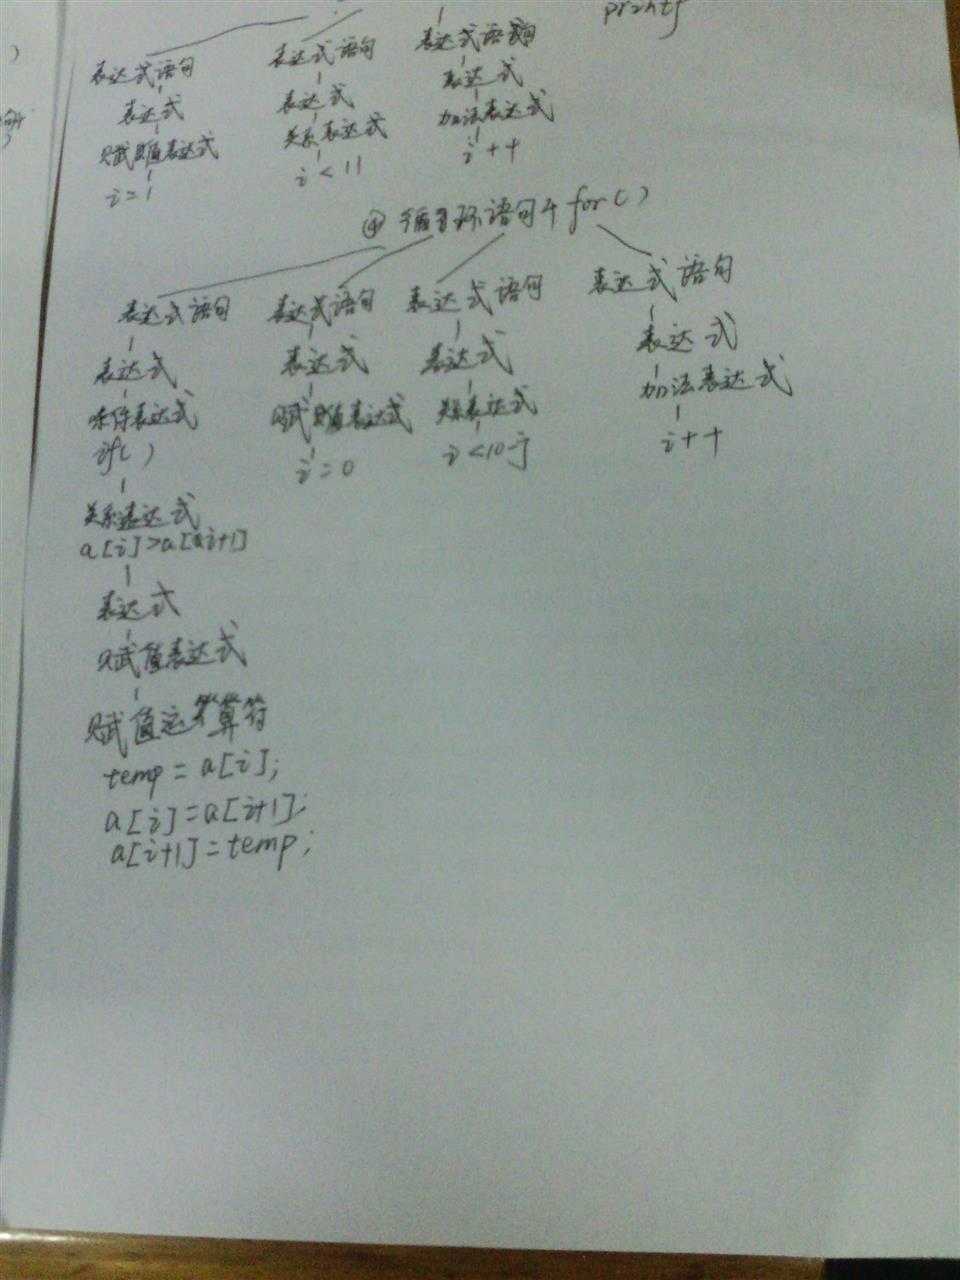 printf
表达式语句 表达式语句 表达式语句
表达式 表达式 表达式
赋值表达式 关系表达式 加法表达式
i=1 i<11 i++
④ 循环语句4 for( )
表达式语句 表达式语句 表达式语句 表达式语句
表达式 表达式 表达式 表达式
条件表达式 赋值表达式 关系表达式 加法表达式
if( ) i=0 i<10-j i++
关系表达式
a[i]>a[i+1]
表达式
赋值表达式
赋值运算符
temp=a[i];
a[i]=a[i+1];
a[i+1]=temp;